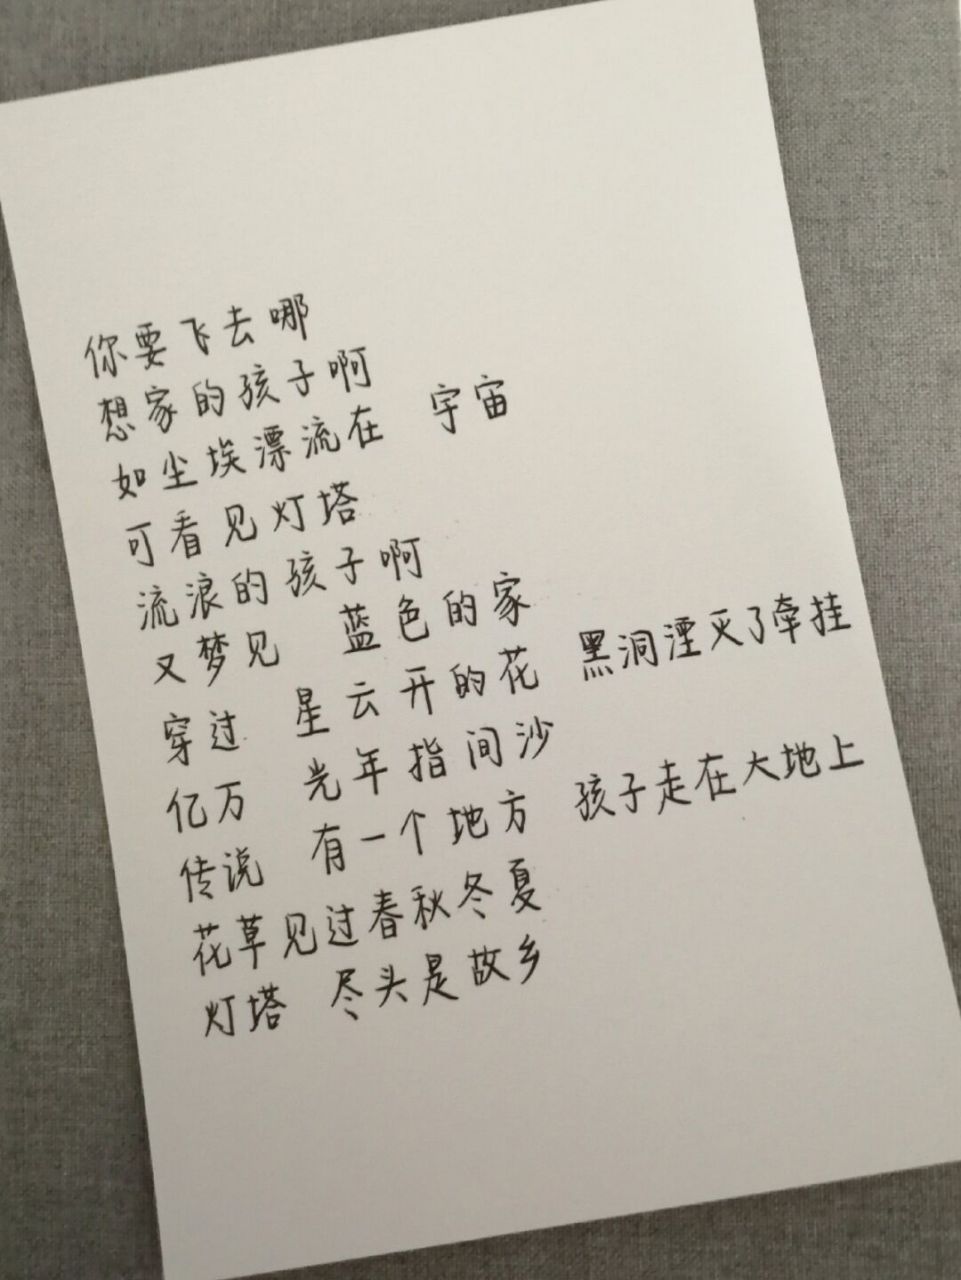 你要飞去哪
想家的孩子啊
如尘埃漂流在 宇宙
可看见灯塔
流浪的孩子啊
又梦见 蓝色的家
穿过 星云开的花 黑洞湮灭了牵挂
亿万 光年指间沙
传说 有一个地方 孩子走在大地上
花草见过春秋冬夏
灯塔 尽头是故乡